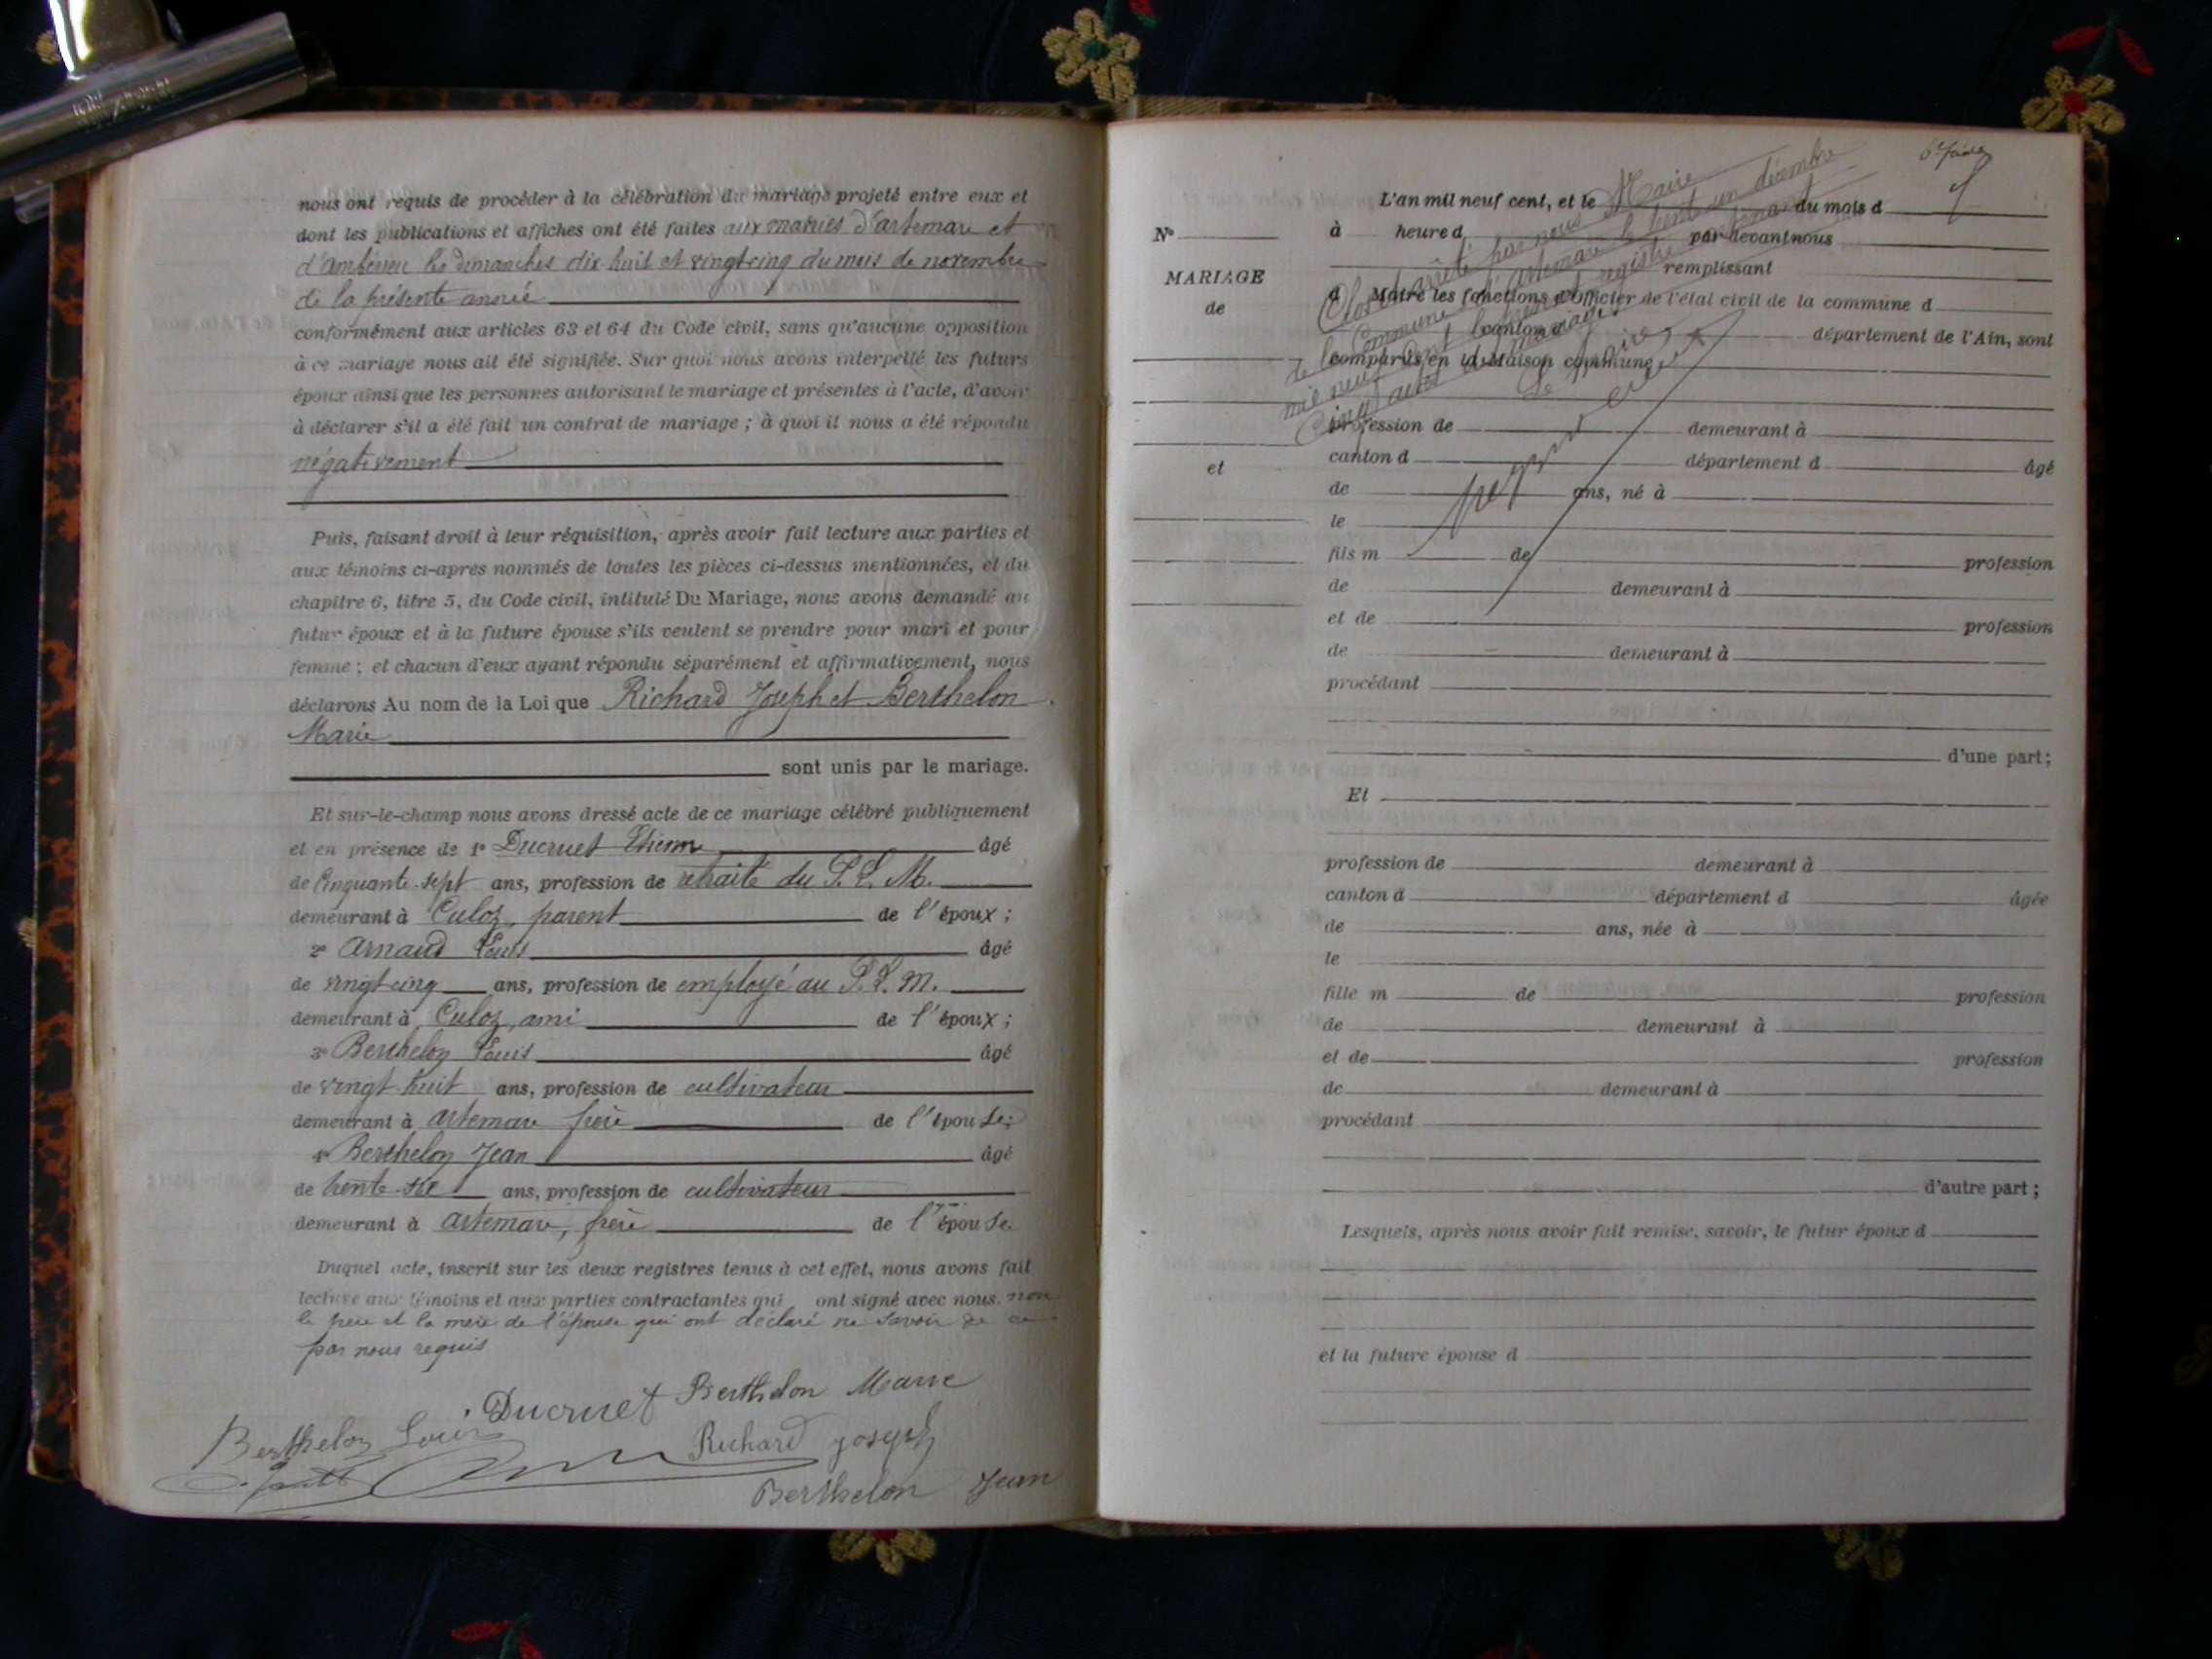 nous ont requis de procéder à la célébration du mariage projeté entre eux et
dont les publications et affiches ont été faites aux mairies d'artemare et
d'ambérieu les dimanches dix huit et vingt cinq du mois de novembre
de la présente année
conformément aux articles 63 et 64 du Code civil, sans qu'aucune opposition
à ce mariage nous ait été signifiée. Sur quoi nous avons interpellé les futurs
époux ainsi que les personnes autorisant le mariage et présentes à l'acte, d'avoir
à déclarer s'il a été fait un contrat de mariage ; à quoi il nous a été répondu
négativement
Puis, faisant droit à leur réquisition, après avoir fait lecture aux parties et
aux témoins ci-après nommés de toutes les pièces ci-dessus mentionnées, et du
chapitre 6, titre 5, du Code civil, intitulé Du Mariage, nous avons demandé au
futur époux et à la future épouse s'ils veulent se prendre pour mari et pour
femme ; et chacun d'eux ayant répondu séparément et affirmativement, nous
déclarons Au nom de la Loi que Richard Joseph et Berthelon
Marie
sont unis par le mariage.
Et sur-le-champ nous avons dressé acte de ce mariage célébré publiquement
et en présence de 1° Ducruet âgé
de Cinquante-sept ans, profession de retraité du P. L. M.
demeurant à Culoz, parent de l'époux ;
2° Arnaud Louis âgé
de vingt cinq ans, profession de employé au P. L. M.
demeurant à Culoz, ami de l'époux ;
3° Berthelon Louis âgé
de vingt huit ans, profession de cultivateur
demeurant à artemare frère de l'épouse;
4° Berthelon Jean âgé
de trente-six ans, profession de cultivateur
demeurant à artemare, frère de l'épouse
Duquel acte, inscrit sur les deux registres tenus à cet effet, nous avons fait
lecture aux témoins et aux parties contractantes qui ont signé avec nous. non
le père et la mère de l'épouse qui ont déclaré ne savoir de ce
par nous requis
Ducruet Berthelon Marie
Berthelon Louis
Richard Joseph
Berthelon Jean
L'an mil neuf cent, et le du mois d
N° à heure d par devant nous
remplissant
MARIAGE
de
d Maire les fonctions d'Officier de l'état civil de la commune d
canton d département de l'Ain, sont
comparus en la Maison commune
Clos et arrêté par nous Maire
de la Commune d'Artemare le trente un décembre
mil neuf cent le présent registre contenant
Cinq actes de Mariage
Le Maire
profession de demeurant à
et
canton d département d âgé
de ans, né à
le
fils m de profession
de demeurant à
et de profession
de demeurant à
procédant
d'une part ;
Et
profession de demeurant à
canton d département d âgée
de ans, née à
le
fille m de profession
de demeurant à
et de profession
de demeurant à
procédant
d'autre part ;
Lesquels, après nous avoir fait remise, savoir, le futur époux d
et la future épouse d